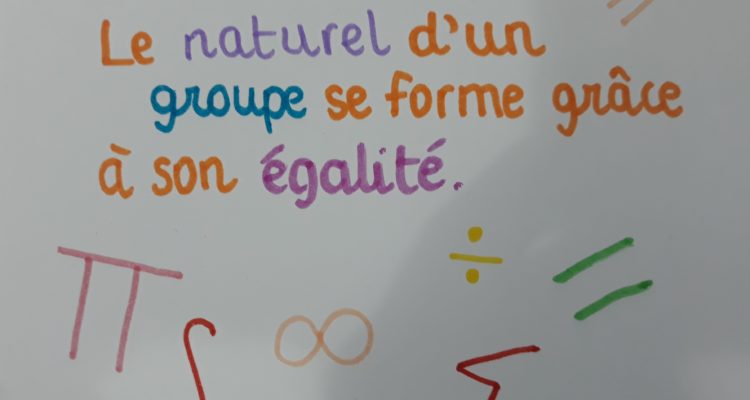 Le naturel d'un
groupe se forme grâce
à son égalité.
π ÷ =
∫ ∞ Σ